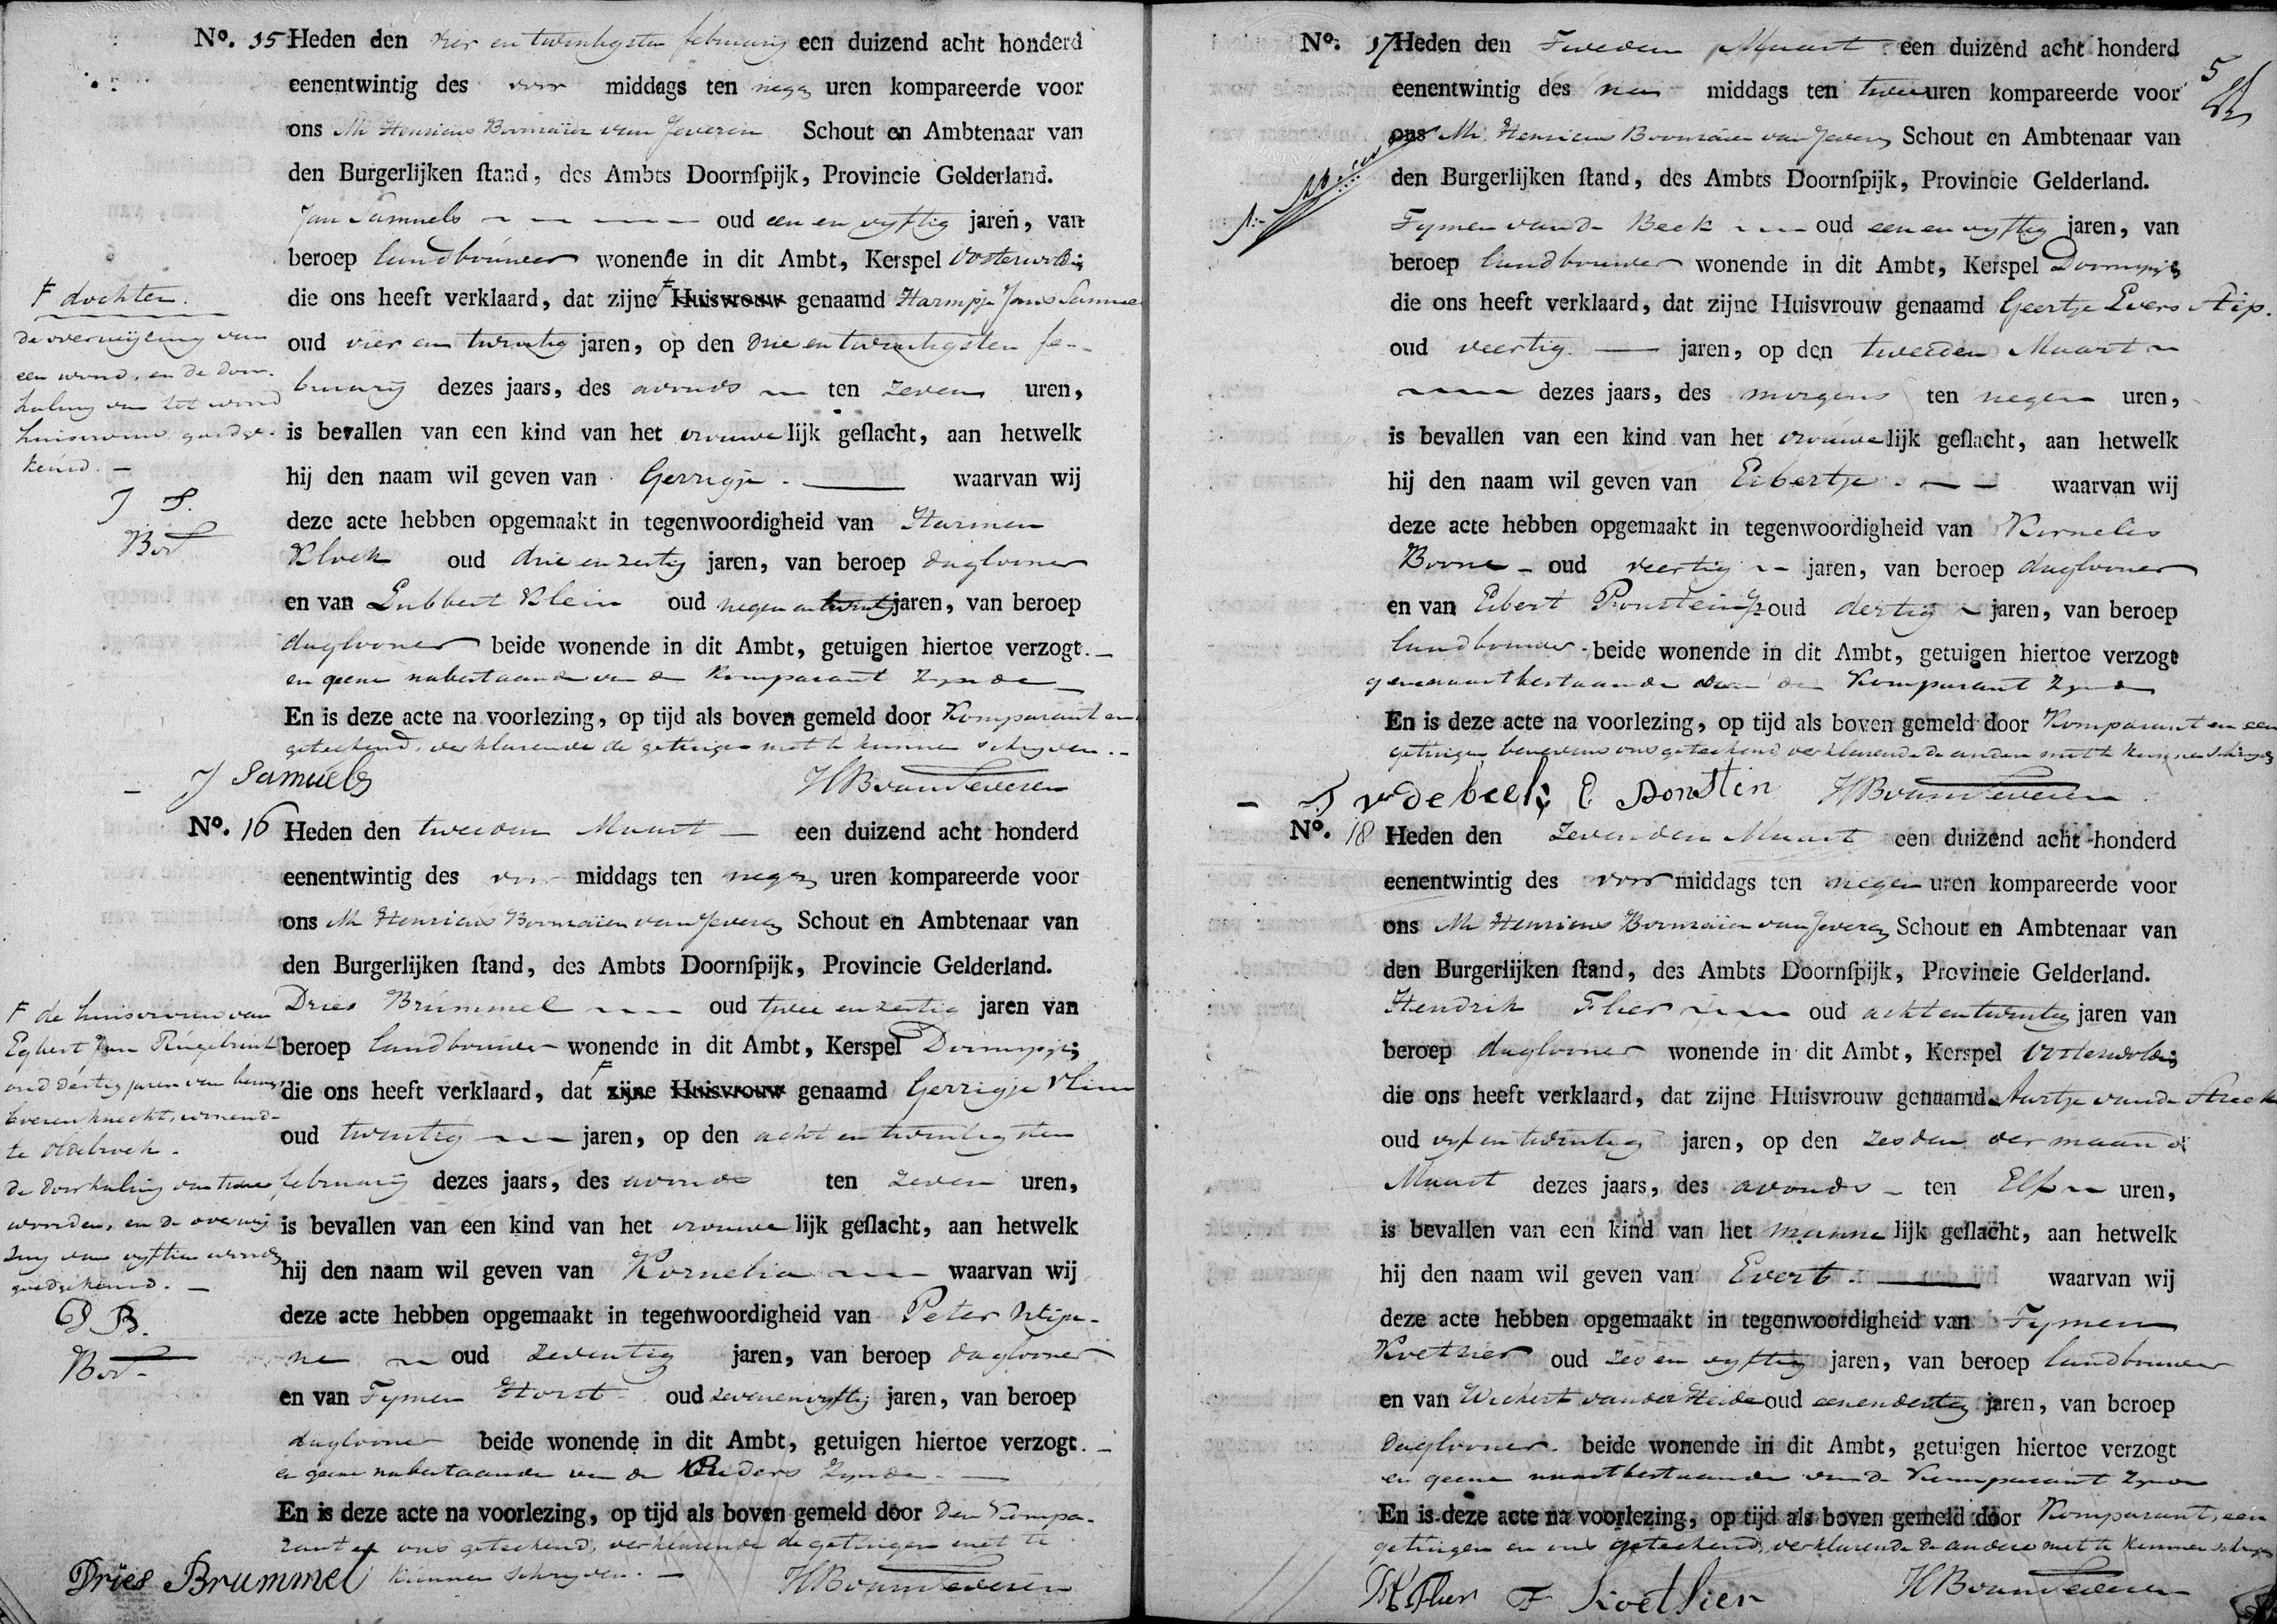 No. 15 Heden den vier en twintigsten februarij een duizend acht honderd
eenentwintig des voor middags ten negen uren kompareerde voor
ons Mr Henricus van Jeveren Schout en Ambtenaar van
den Burgerlijken ſtand, des Ambts Doornſpijk, Provincie Gelderland.
Jan Samuels oud een en vyftig jaren, van
beroep landbouwer wonende in dit Ambt, Kerspel Oosterwolde
die ons heeft verklaard, dat zijne F Huisvrouw genaamd Harmpje Jans Samuels
oud vier en twintig jaren, op den drie en twintigsten fe-
bruarij dezes jaars, des avonds ten zeven uren,
is bevallen van een kind van het vrouwelijk geſlacht, aan hetwelk
hij den naam wil geven van Gerrigje. waarvan wij
deze acte hebben opgemaakt in tegenwoordigheid van Harmen
Klock oud drie en zestig jaren, van beroep daglooner
en van Lubbert Klein oud negen en twintig jaren, van beroep
daglooner beide wonende in dit Ambt, getuigen hiertoe verzogt.
en geene nabestaande van de Komparant zynde
En is deze acte na voorlezing, op tijd als boven gemeld door Komparant en
geteekend, verklarende de getuigen niet te kunnen schryven.
J Samuels HBvanJeveren
F dochter.
de overwijzing van
een woord, en de door-
haling van het woord
huisvrouw goedge-
keurd.
J S.
No. 16 Heden den tweeden Maart een duizend acht honderd
eenentwintig des voor middags ten negen uren kompareerde voor
ons Mr Henricus van Jeveren Schout en Ambtenaar van
den Burgerlijken ſtand, des Ambts Doornſpijk, Provincie Gelderland.
Dries Brummel oud twee en zestig jaren van
beroep landbouwer wonende in dit Ambt, Kerspel Doornspijk
die ons heeft verklaard, dat F zijne Huisvrouw genaamd Gerrigje
oud twintig jaren, op den acht en twintigsten
februarij dezes jaars, des avonds ten zeven uren,
is bevallen van een kind van het vrouwelijk geſlacht, aan hetwelk
hij den naam wil geven van Kornelia waarvan wij
deze acte hebben opgemaakt in tegenwoordigheid van Peter
oud zeventig jaren, van beroep daglooner
en van Tymen Horst oud zevenenvyftig jaren, van beroep
daglooner beide wonende in dit Ambt, getuigen hiertoe verzogt.
en geene nabestaande van de Ouders zynde.
En is deze acte na voorlezing, op tijd als boven gemeld door den Kompa-
rant en ons geteekend, verklarende de getuigen niet te
kunnen schryven.
Dries Brummel HBvanJeveren
F de huisvrouw van
Egbert Jan
oud dertig jaren van beroep
boerenknecht, wonende
te Oldebroek.
de doorhaling van twee
woorden, en de overwij
zing van vyftien woorden
goedgekeurd.
D B.
No. 17 Heden den Tweeden Maart een duizend acht honderd
eenentwintig des na middags ten twee uren kompareerde voor
ons Mr. Henricus van Jeveren Schout en Ambtenaar van
den Burgerlijken ſtand, des Ambts Doornſpijk, Provincie Gelderland.
Tymen van de Beek oud een en vyftig jaren, van
beroep landbouwer wonende in dit Ambt, Kerspel Doornspijk
die ons heeft verklaard, dat zijne Huisvrouw genaamd Geertje Evers Stip.
oud veertig. jaren, op den tweeden Maart
dezes jaars, des morgens ten negen uren,
is bevallen van een kind van het vrouwelijk geſlacht, aan hetwelk
hij den naam wil geven van Eibertje. waarvan wij
deze acte hebben opgemaakt in tegenwoordigheid van Kornelis
Boone oud veertig jaren, van beroep daglooner
en van Eibert Ponstein oud dertig jaren, van beroep
landbouwer. beide wonende in dit Ambt, getuigen hiertoe verzogt
geene naastbestaande van de Komparant zynde
En is deze acte na voorlezing, op tijd als boven gemeld door Komparant en een
getuigen benevens ons geteekend verklarende de andere niet te kunnen schryven
T vde beek E Ponstin HBvanJeveren
5
No. 18 Heden den Zevenden Maart een duizend acht honderd
eenentwintig des voor middags ten negen uren kompareerde voor
ons Mr Henricus van Jeveren Schout en Ambtenaar van
den Burgerlijken ſtand, des Ambts Doornſpijk, Provincie Gelderland.
Hendrik Flier oud acht en twintig jaren van
beroep daglooner wonende in dit Ambt, Kerspel Oosterwolde
die ons heeft verklaard, dat zijne Huisvrouw genaamd Aartje van de Streek
oud vyf en twintig jaren, op den zesden der maand
Maart dezes jaars, des avonds ten Elf uren,
is bevallen van een kind van het mannelijk geſlacht, aan hetwelk
hij den naam wil geven van Evert. waarvan wij
deze acte hebben opgemaakt in tegenwoordigheid van Tymen
Koetsier oud zes en vyftig jaren, van beroep landbouwer
en van Wichert van der Heide oud eenendertig jaren, van beroep
Daglooner. beide wonende in dit Ambt, getuigen hiertoe verzogt
en geene naastbestaande van de Komparant zynde
En is deze acte na voorlezing, op tijd als boven gemeld door Komparant, een
getuigen en ons geteekend, verklarende de andere niet te kunnen schryven
H Flier T Koetsier HBvanJeveren